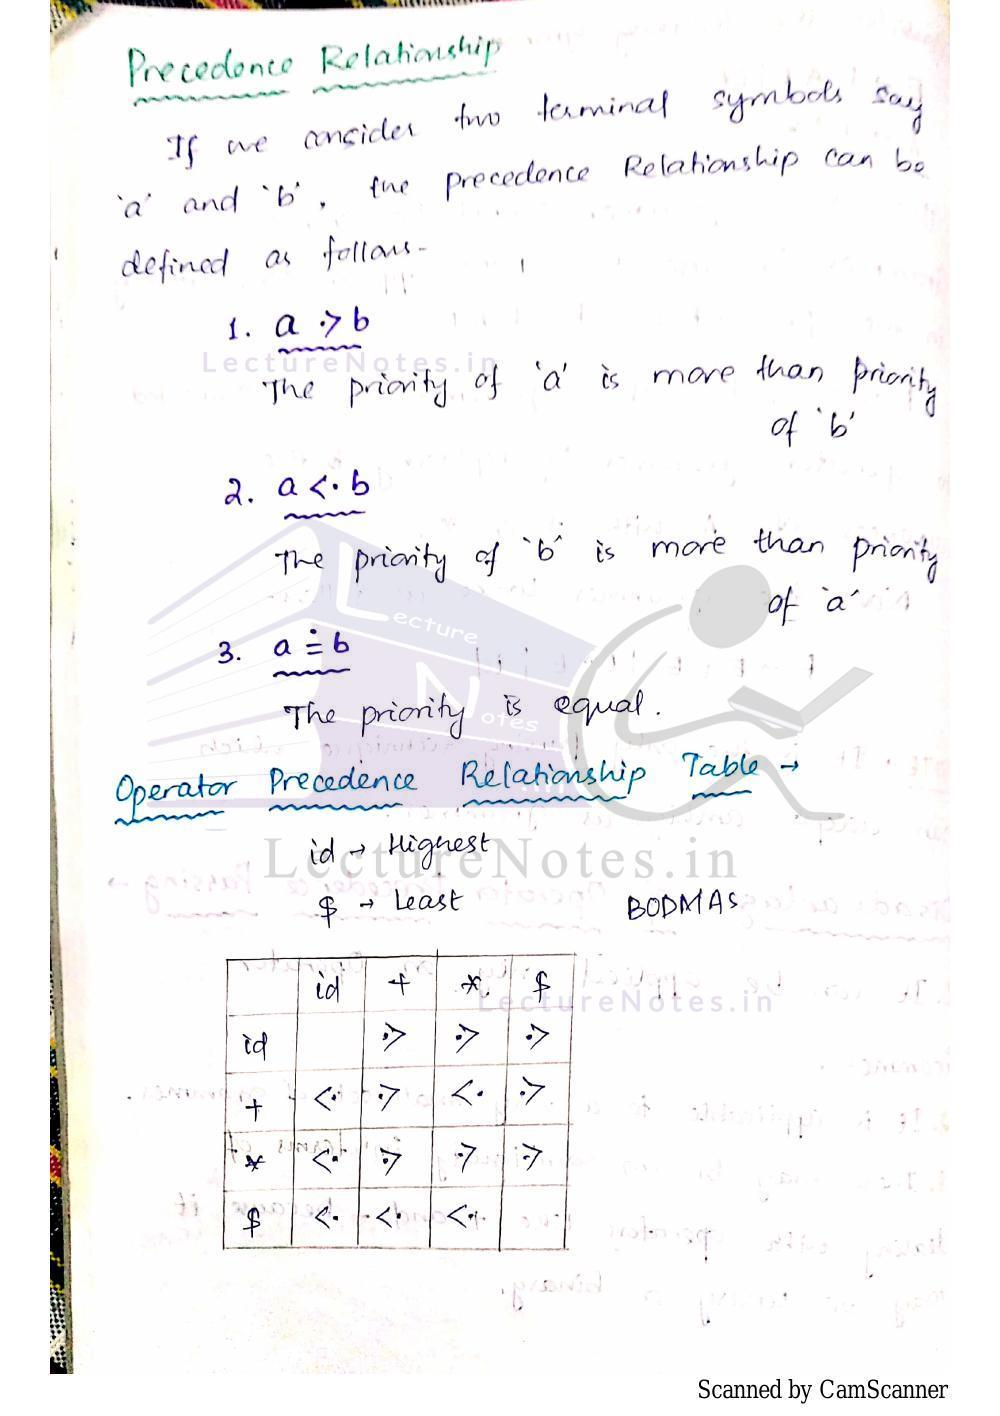 Precedence Relationship
If we consider two terminal symbols say
'a' and 'b', the precedence Relationship can be
defined as follows-
1. a ·> b
LectureNotes.in
The priority of 'a' is more than priority
of 'b'
2. a <· b
The priority of 'b' is more than priority
of 'a'
Lecture
3. a ≐ b
Notes
The priority is equal.
Operator Precedence Relationship Table →
id → Highest
LectureNotes.in
$ → Least BODMAS
id + * $
LectureNotes.in
id ·> ·> ·>
+ <· ·> <· ·>
* <· ·> ·> ·>
$ <· <· <·
Scanned by CamScanner